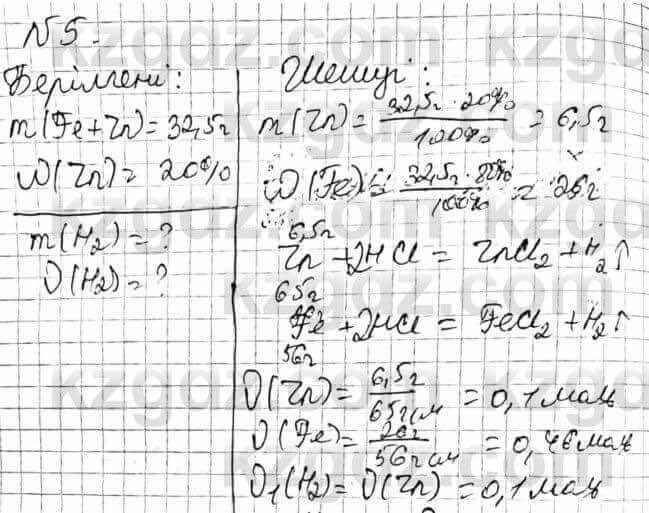 N5.
Берілгені:
m(Fe+Zn)=32,5г
ω(Zn)=20%
m(H₂)=?
υ(H₂)=?
Шешуі:
m(Zn)= 32,5г·20% / 100% = 6,5г
ω(Fe)= 32,5г·80% / 100% = 26г
6,5г
Zn +2HCl = ZnCl₂ + H₂↑
65г
Fe +2HCl = FeCl₂ +H₂↑
56г
υ(Zn)= 6,5г / 65г/м = 0,1моль
υ(Fe)= 26г / 56г/м = 0,46моль
υ₁(H₂)= υ(Zn) =0,1моль
kzgdz.com